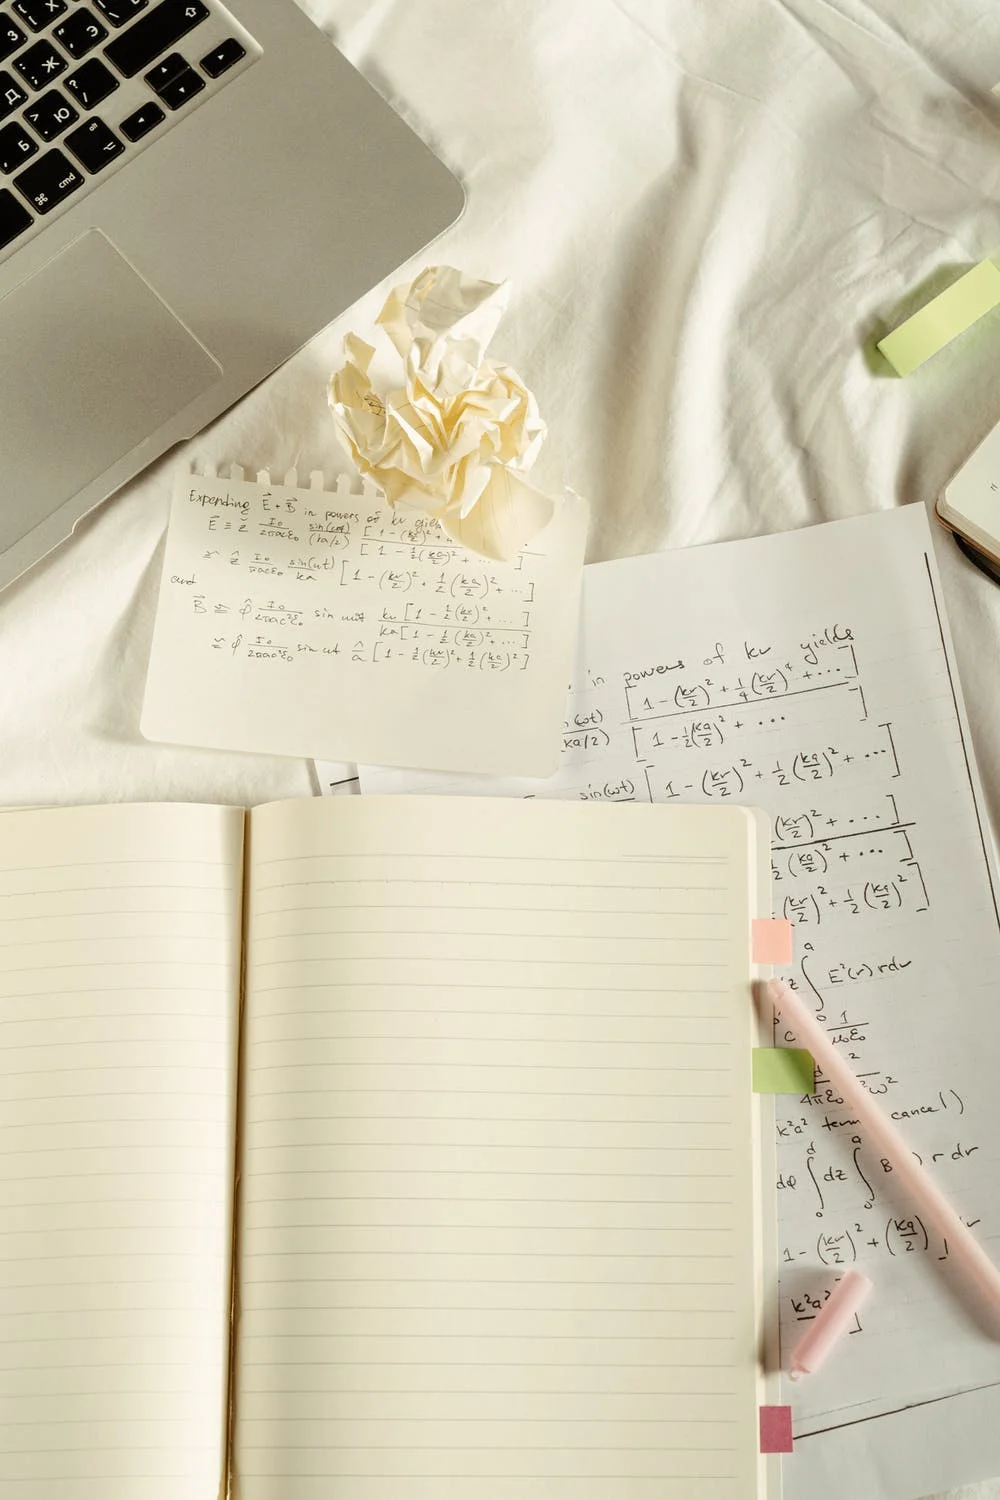 З Х
Э
Ж
Д
Ю
Б
alt
⌘ cmd
Expending E⃗ + B⃗ in powers of kr
E⃗ ≡ ž I₀/2πacε₀ sin(ωt)/(ka/2) [1 - (kr/2)² +
[1 - ½(ka/2)² + ⋯ ]
≃ ẑ I₀/πacε₀ sin(ωt)/ka [1 - (kr/2)² + ½(ka/2)² + ⋯ ]
and
B⃗ ≅ φ̂ I₀/2πac²ε₀ sin kr[1 - ½(kr/2)² + ⋯ ]
ka[1 - ½(ka/2)² + ⋯ ]
≃ φ̂ I₀/2πac²ε₀ sin ωt [1 - ½(kr/2)² + ½(ka/2)²]
in powers of kr yields
(ωt)/ka/2) [1 - (kr/2)² + ¼(kr/2)⁴ + ⋯ ]
[1 - ½(ka/2)² + ⋯ ]
sin(ωt) [1 - (kr/2)² + ½(ka/2)² + ⋯ ]
(kr/2)² + ⋯ ]
½(ka/2)² + ⋯ ]
(kr/2)² + ½(ka/2)² ]
z ∫₀ᵃ E²(r) rdr
c 1/μ₀ε₀
d 2
4πε₀ ²ω²
k²a² term cancel)
dφ ∫₀ᵈ dz ∫₀ᵃ B ) r dr
1 - (kr/2)² + (ka/2) ]
k²a²
]